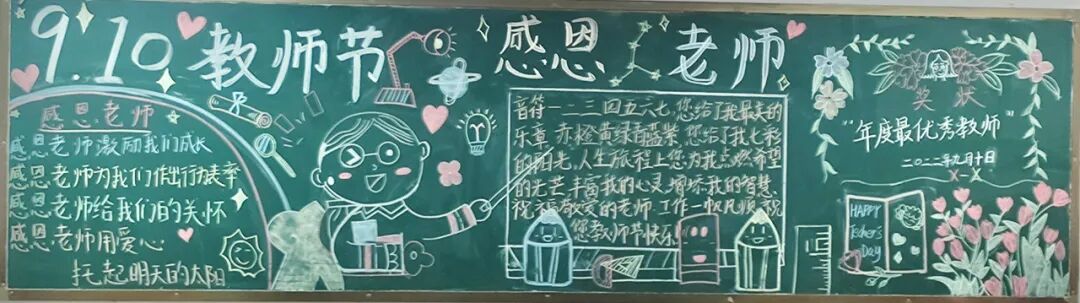 9.10 教师节
感恩老师
感恩老师
感恩老师激励我们成长
感恩老师为我们作出行为表率
感恩老师给我们的关怀
感恩老师用爱心
托起明天的太阳
音符一二三四五六七,您给了我最美的
乐章,赤橙黄绿青蓝紫,您给了我七彩
的阳光,人生旅程上,您为我点燃希望
的光芒,丰富我的心灵,增添我的智慧,
祝福敬爱的老师,工作一帆风顺,祝
您教师节快乐
奖状
"年度最优秀教师"
二〇二二年九月十日
X-X
HAPPY
Teacher's
DAY